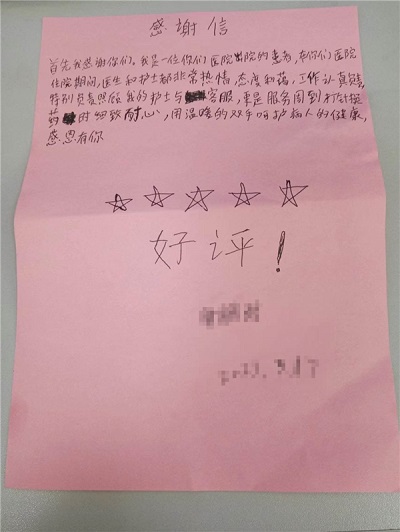 感谢信
首先我感谢你们。我是一位你们医院出院的患者,在你们医院
住院期间,医生和护士都非常热情,态度和蔼,工作认真负责
特别负责照顾我的护士与客服,更是服务周到打针换
药时细致耐心,用温暖的双手呵护病人的健康,
感恩有你
☆☆☆☆☆
好评!